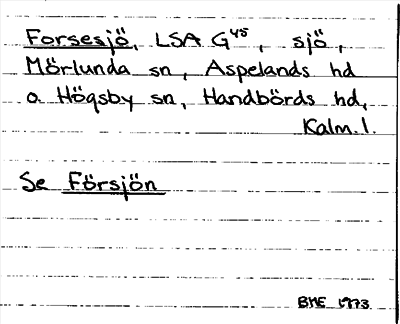 Forsesjö, LSA G45, sjö,
Mörlunda sn, Aspelands hd
o. Högsby sn, Handbörds hd,
Kalm. l.
Se Försjön
BME 1973